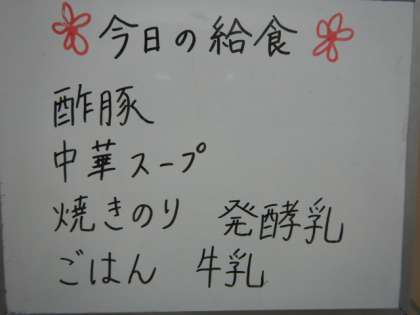 今日の給食
酢豚
中華スープ
焼きのり 発酵乳
ごはん 牛乳